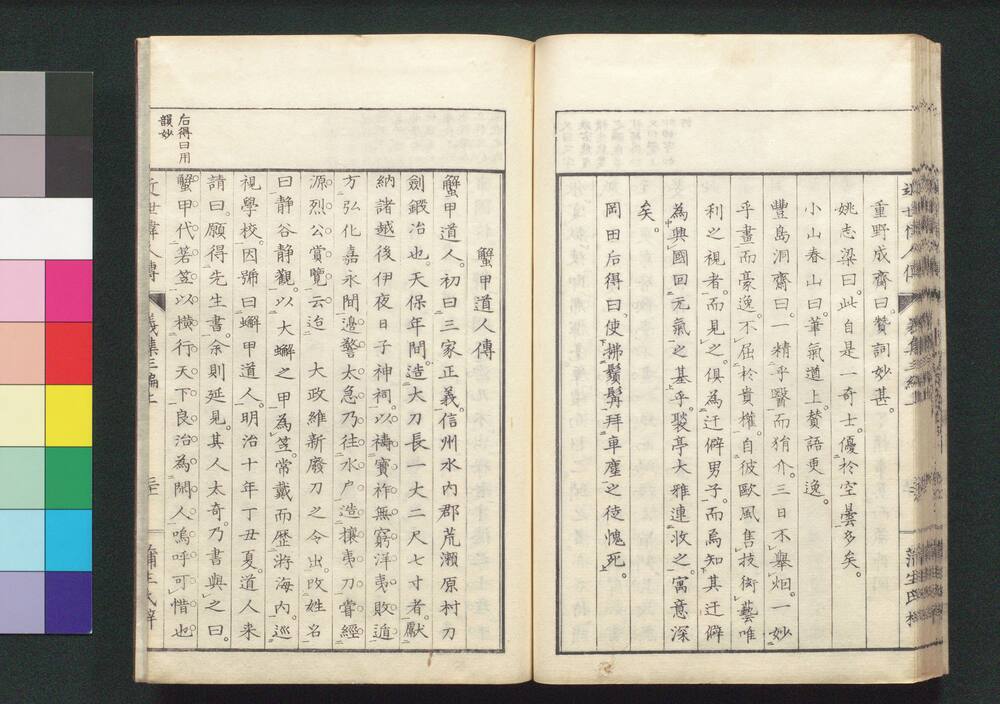 重野成齋曰。贊詞妙甚。
姚志梁曰。此自是一奇士。優於空曇多矣。
小山春山曰。筆氣遒上。贊語更逸。
豐島洞齋曰。一精乎醫而狷介。三日不擧烟。一妙
乎畫而豪逸。不屈於貴權。自彼歐風售技衒藝唯
利之視者。而見之。俱為迂僻男子。而焉知其迂僻
為興國回元氣之基乎。褧亭大雅連收之。寓意深
矣。
岡田后得曰。使拂鬚髯拜車塵之徒愧死。
蟹甲道人傳
蟹甲道人。初曰三家正義。信州水內郡荒瀨原村刀
劍鍛冶也。天保年間。造大刀長一丈二尺七寸者。獻
納諸越後伊夜日子神祠。以禱寶祚無窮洋夷敗遁
方弘化嘉永間。邊警太急。乃往水戶。造攘夷刀。嘗經
源烈公賞覽云。迨 大政維新廢刀之令出。改姓名
曰靜谷靜觀。以大蠏之甲為笠。常戴而歷將海內。巡
視學校。因號曰蠏甲道人。明治十年丁丑夏。道人來
請曰。願得先生書。余則延見。其人太奇。乃書與之曰。
蟹甲代蒻笠。以橫行天下。良冶為閑人。嗚呼可惜也
后得曰用
韻妙
近世偉人傳
義集三編上
蒲生氏梓